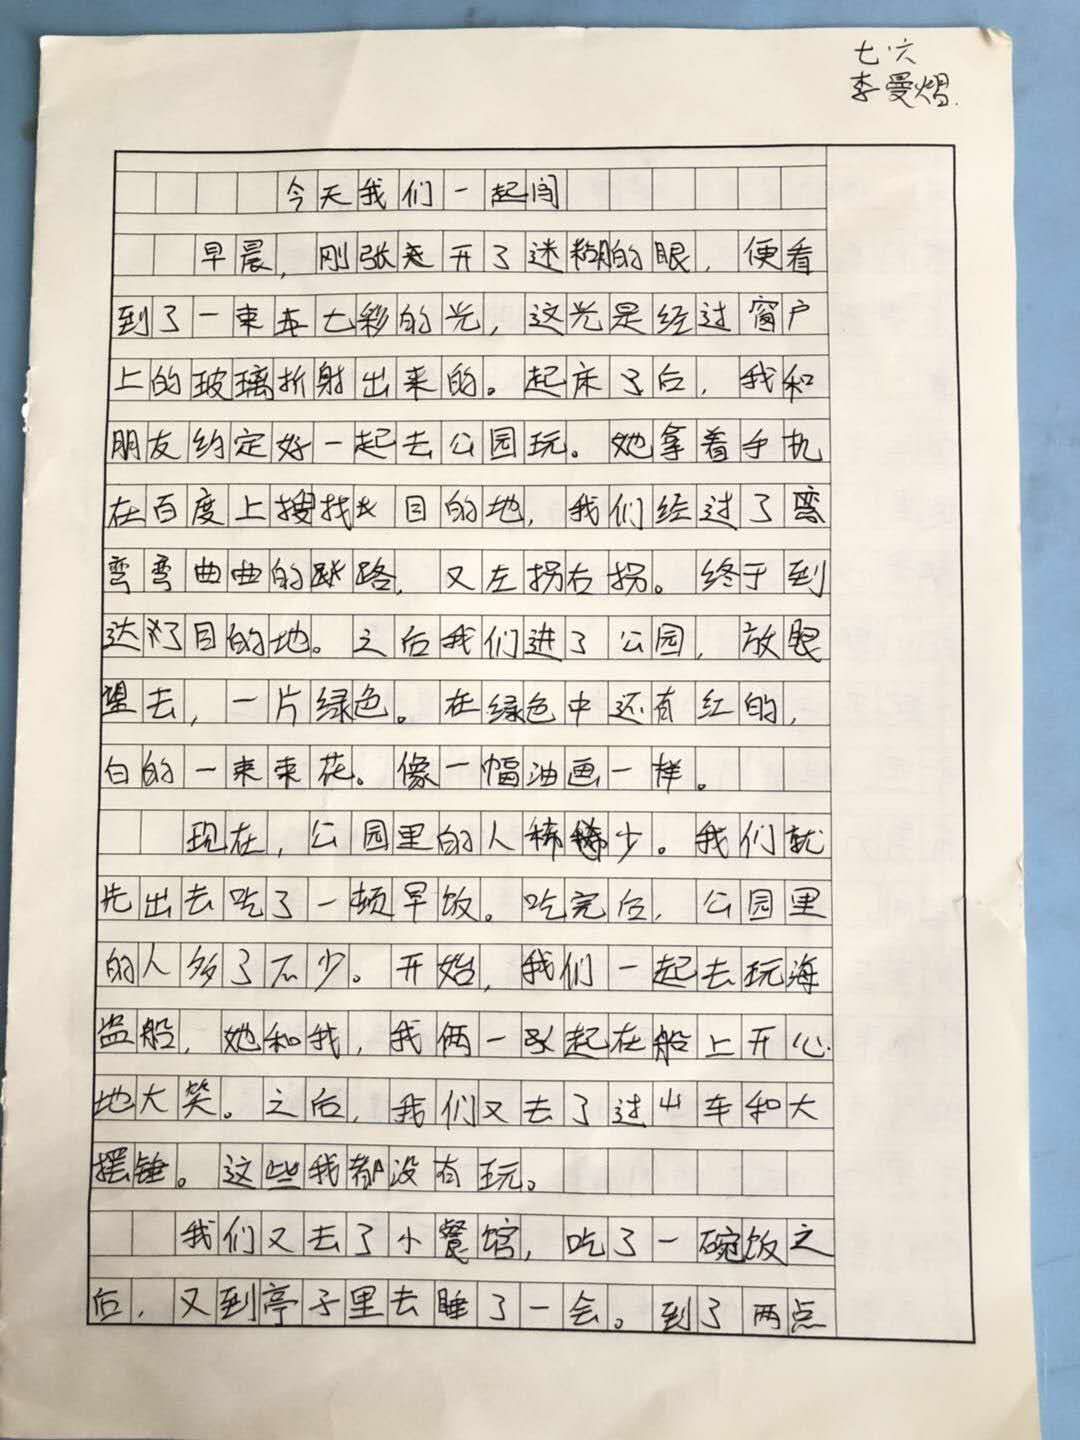 七·六
李曼熠
今天我们一起闯
早晨，刚张开了迷糊的眼，便看
到了一束七彩的光，这光是经过窗户
上的玻璃折射出来的。起床了后，我和
朋友约定好一起去公园玩。她拿着手机
在百度上搜找目的地，我们经过了弯
弯弯曲曲的路，又左拐右拐。终于到
达了目的地。之后我们进了公园，放眼
望去，一片绿色。在绿色中还有红的，
白的一束束花。像一幅油画一样。
现在，公园里的人稀少。我们就
先出去吃了一顿早饭。吃完后，公园里
的人多了不少。开始，我们一起去玩海
盗船，她和我，我俩一起在船上开心
地大笑。之后，我们又去了过山车和大
摆锤。这些我都没有玩。
我们又去了小餐馆，吃了一碗饭之
后，又到亭子里去睡了一会。到了两点